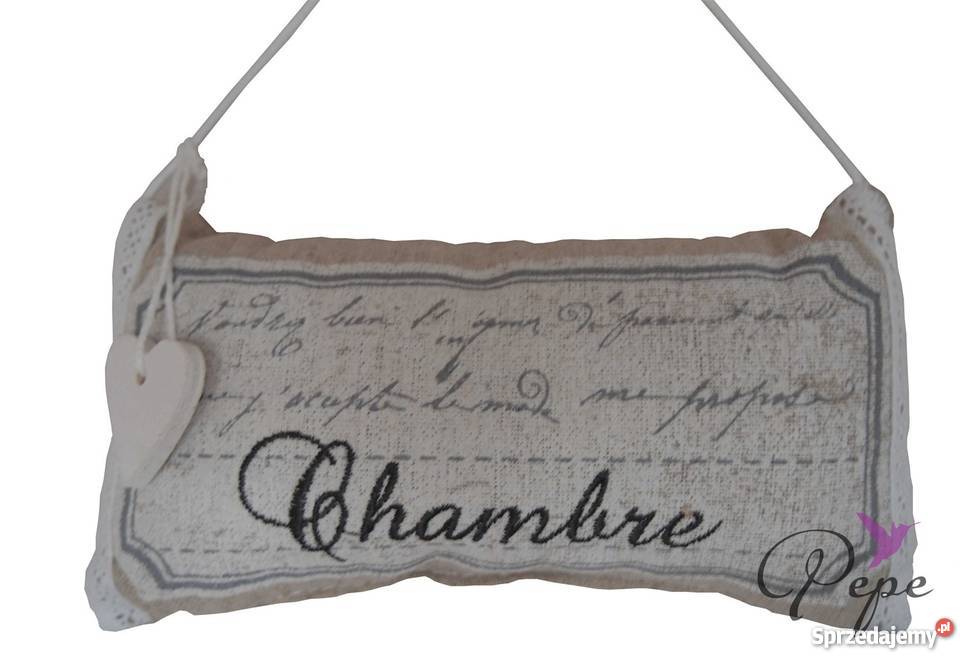 Voudrez bien l'
j'accepte le mode me propose
Chambre
Pepe
Sprzedajemy.pl